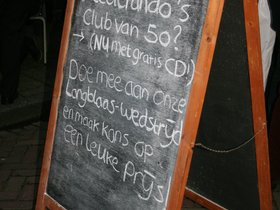 Club van 50?
→ (NU met gratis CD!)
Doe mee aan onze
Langblaas-wedstrijd
en maak kans op
een leuke prijs